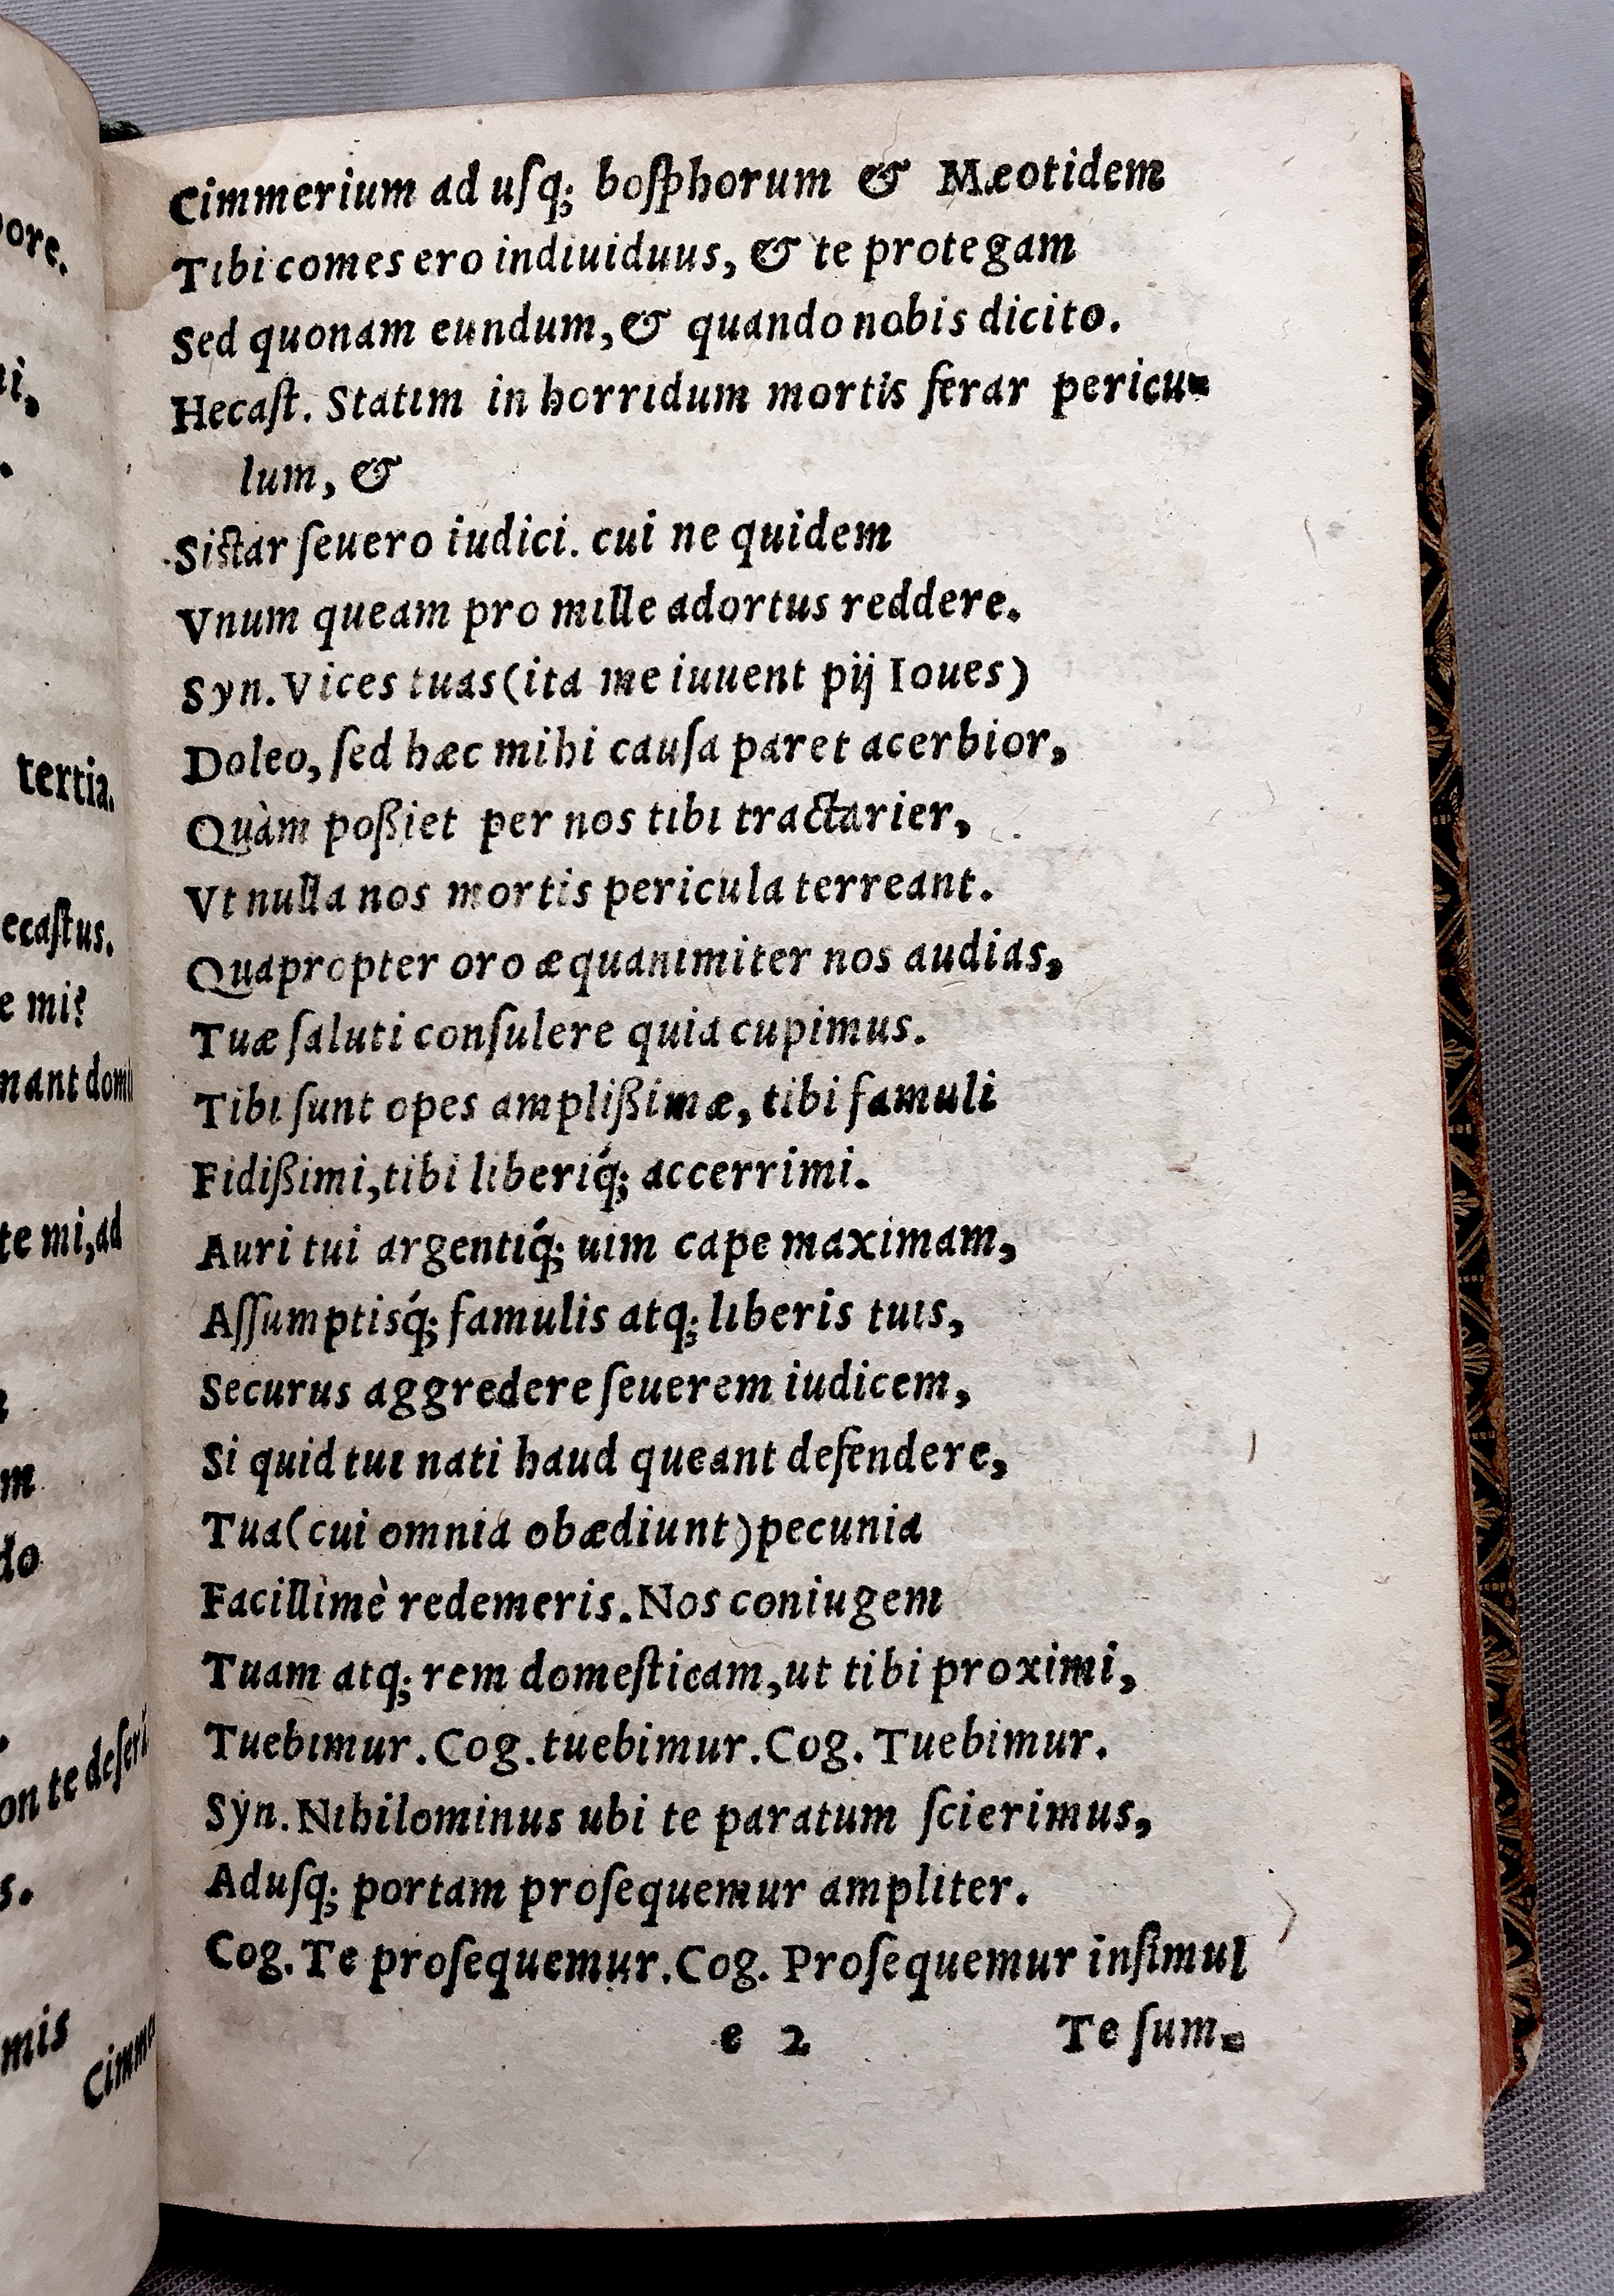 pore.
tertia.
ecaſtus.
e mi?
nant domi
te mi, ad
m
do
on te deſeri
s.
mis
Cimme
Cimmerium ad uſq; boſphorum & Mæotidem
Tibi comes ero indiuiduus, & te protegam
Sed quonam eundum, & quando nobis dicito.
Hecaſt. Statim in horridum mortis ferar pericu-
lum, &
Siſtar ſeuero iudici. cui ne quidem
Vnum queam pro mille adortus reddere.
Syn. Vices tuas (ita me iuuent pij Ioues)
Doleo, ſed hæc mihi cauſa paret acerbior,
Quàm poßiet per nos tibi tractarier,
Vt nulla nos mortis pericula terreant.
Quapropter oro æquanimiter nos audias,
Tuæ ſaluti conſulere quia cupimus.
Tibi ſunt opes amplißimæ, tibi famuli
Fidißimi, tibi liberiq́; accerrimi.
Auri tui argentiq́; uim cape maximam,
Aſſumptisq́; famulis atq; liberis tuis,
Securus aggredere ſeuerem iudicem,
Si quid tui nati haud queant defendere,
Tua (cui omnia obædiunt) pecunia
Facillimè redemeris. Nos coniugem
Tuam atq; rem domeſticam, ut tibi proximi,
Tuebimur. Cog. tuebimur. Cog. Tuebimur.
Syn. Nihilominus ubi te paratum ſcierimus,
Aduſq; portam proſequemur ampliter.
Cog. Te proſequemur. Cog. Proſequemur inſimul
e 2 Te ſum-